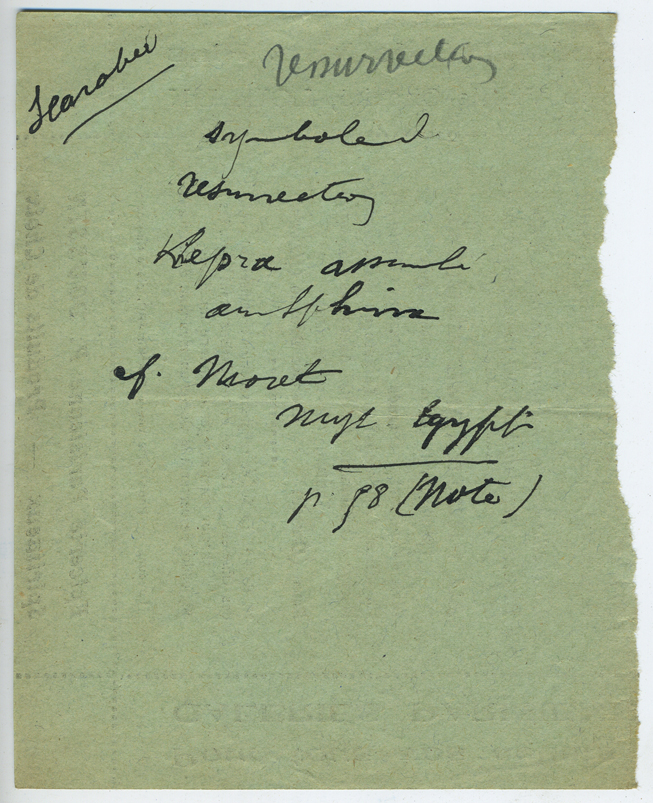 Scarabée
resurrection
symbole d
resurrection
Khepra assimilé
au Sphinx
cf. Moret
Myst. Egypt
p 98 (Note)